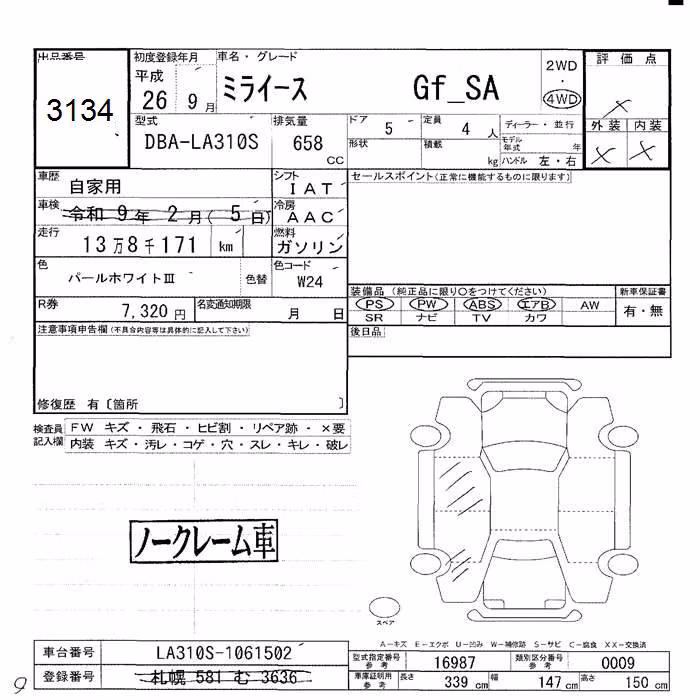 出品番号
3134
初度登録年月
平成
26 年 9 月
車名・グレード
ミライース Gf_SA
2WD
・
4WD
評価点
×
外装 内装
× ×
型式
DBA-LA310S
排気量
658
CC
ドア 5
定員 4 人
形状
積載 kg
ディーラー・並行
モデル年式 年
ハンドル 左・右
車歴
自家用
シフト
IAT
車検
令和 9 年 2 月( 5 日)
冷房
AAC
走行
13万8千171 km
燃料
ガソリン
色
パールホワイトⅢ
色替
色コード
W24
R券
7,320 円
名変通知期限
月 日
セールスポイント(正常に機能するものに限ります)
装備品 (純正品に限り○をつけてください)
PS PW ABS エアB AW
SR ナビ TV カワ
新車保証書
有・無
後日品
注意事項申告欄(不具合内容等は具体的に記入して下さい)
修復歴 有〔箇所 〕
検査員記入欄
FW キズ・飛石・ヒビ割・リペア跡・×要
内装 キズ・汚レ・コゲ・穴・スレ・キレ・破レ
ノークレーム車
スペア
A-キズ E-エクボ U-凹み W-補修跡 S-サビ C-腐食 XX-交換済
車台番号 LA310S-1061502
登録番号 札幌 581 む 3636
型式指定番号
参考
16987
類別区分番号
参考
0009
車庫証明用
参考
長さ 339 cm
幅 147 cm
高さ 150 cm
9